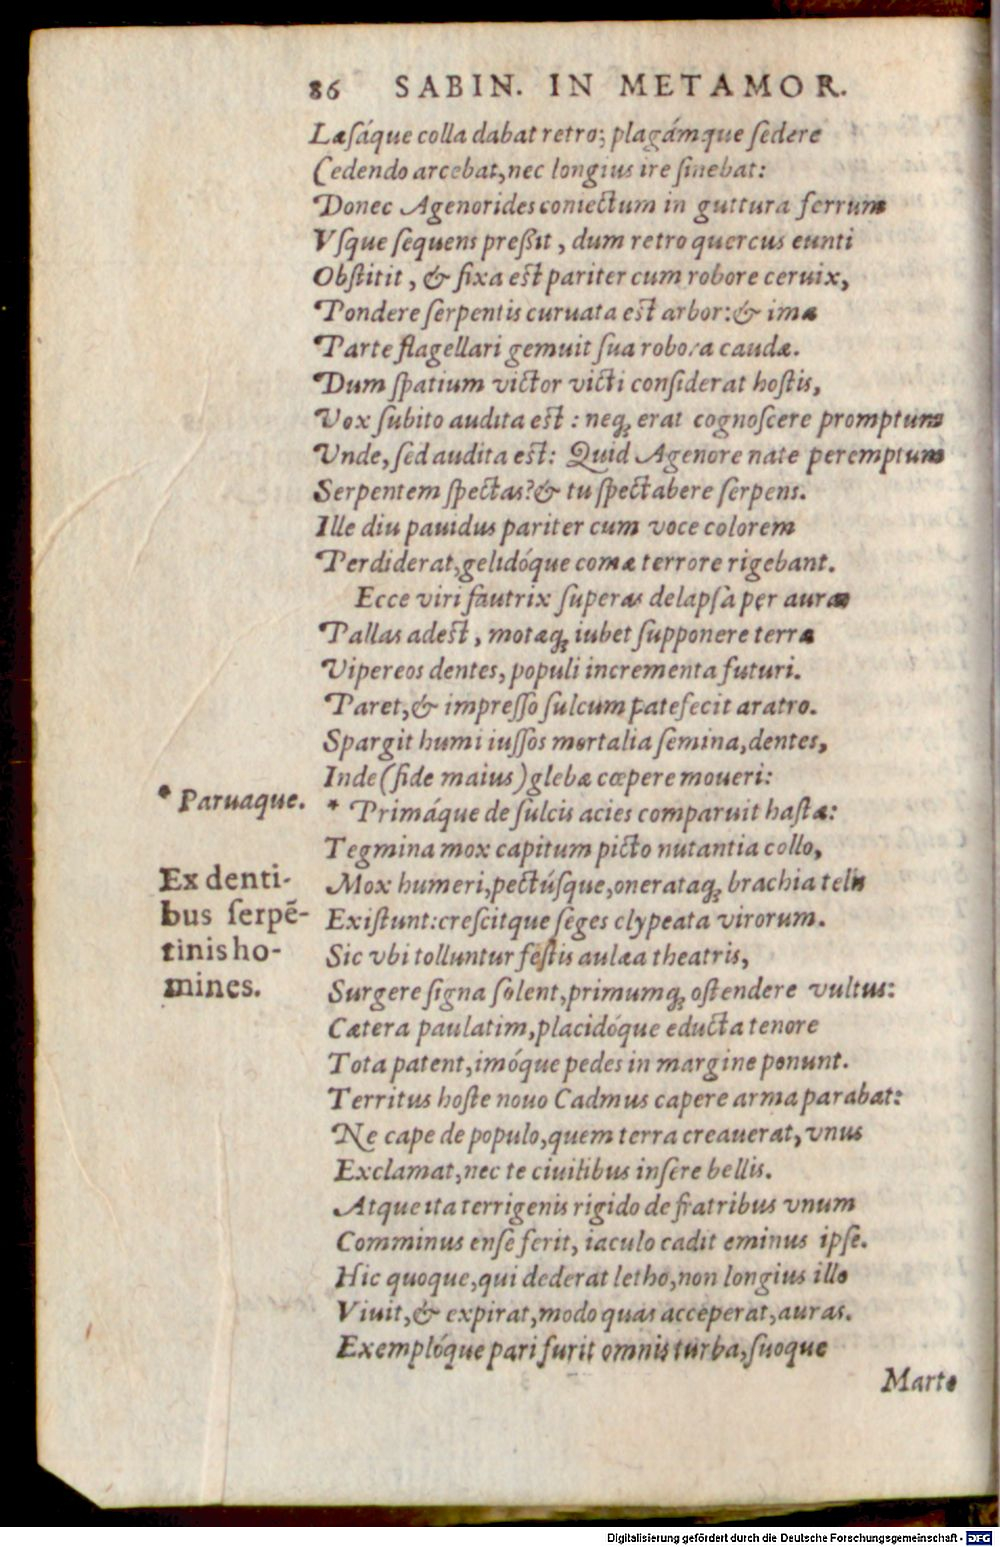 86 SABIN. IN METAMOR.
Læsáque colla dabat retro; plagámque sedere
Cedendo arcebat, nec longius ire sinebat:
Donec Agenorides coniectum in guttura ferrum
Vsque sequens pressit, dum retro quercus eunti
Obstitit, & fixa est pariter cum robore ceruix,
Pondere serpentis curuata est arbor: & imæ
Parte flagellari gemuit sua robora caudæ.
Dum spatium victor victi considerat hostis,
Vox subito audita est: neq; erat cognoscere promptum
Unde, sed audita est: Quid Agenore nate peremptum
Serpentem spectas? & tu spectabere serpens.
Ille diu pauidus pariter cum voce colorem
Perdiderat, gelidóque comæ terrore rigebant.
Ecce viri fautrix superas delapsa per auras
Pallas adest, motæq; iubet supponere terræ
Vipereos dentes, populi incrementa futuri.
Paret, & impresso sulcum patefecit aratro.
Spargit humi iussos mortalia semina, dentes,
Inde (fide maius) glebæ cœpere moueri:
* Paruaque.
* Primáque de sulcis acies comparuit hastæ:
Tegmina mox capitum picto nutantia collo,
Ex denti-
bus serpē-
tinis ho-
mines.
Mox humeri, pectúsque, onerataq; brachia telis
Existunt: crescitque seges clypeata virorum.
Sic vbi tolluntur festis aulæa theatris,
Surgere signa solent, primumq; ostendere vultus:
Cætera paulatim, placidóque educta tenore
Tota patent, imóque pedes in margine ponunt.
Territus hoste nouo Cadmus capere arma parabat:
Ne cape de populo, quem terra creauerat, vnus
Exclamat, nec te ciuilibus insere bellis.
Atque ita terrigenis rigido de fratribus vnum
Comminus ense ferit, iaculo cadit eminus ipse.
Hic quoque, qui dederat letho, non longius illo
Viuit, & expirat, modo quas acceperat, auras.
Exemplóque pari furit omnis turba, suoque
Marte
Digitalisierung gefördert durch die Deutsche Forschungsgemeinschaft - DFG